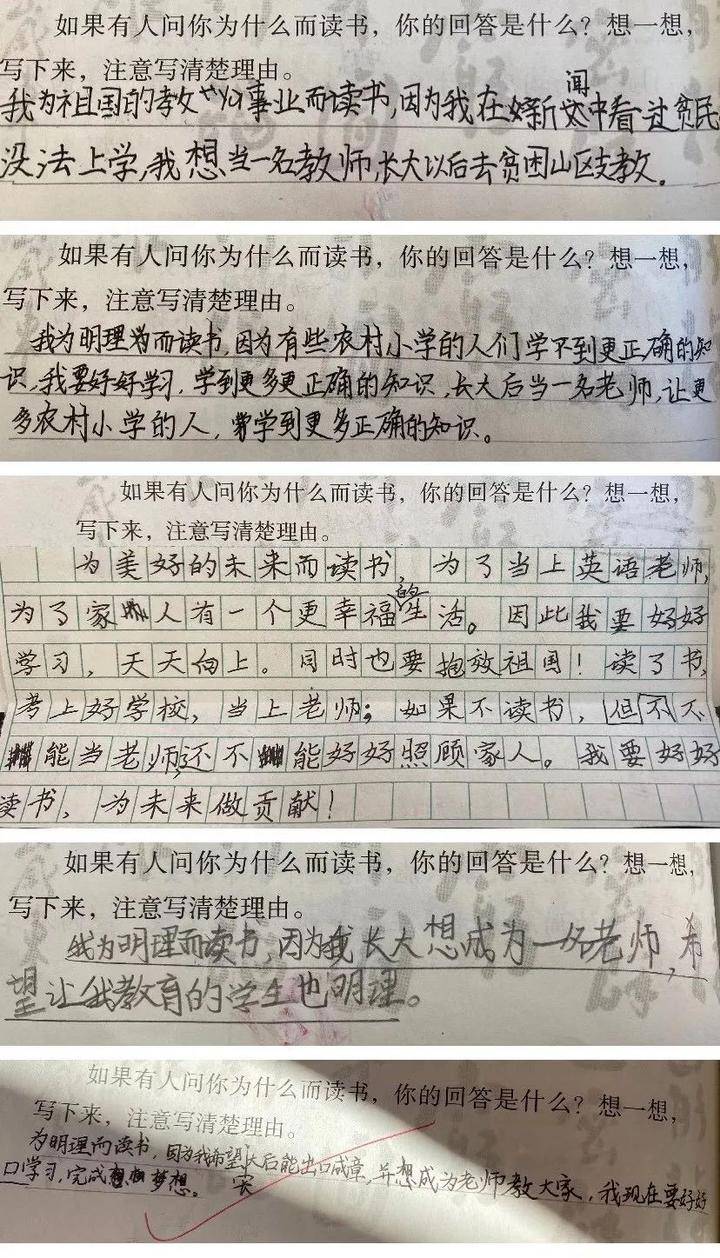 如果有人问你为什么而读书，你的回答是什么？想一想，
写下来，注意写清楚理由。
我为祖国的教育事业而读书，因为我在新闻中看过贫民
没法上学，我想当一名教师，长大以后去贫困山区支教。
如果有人问你为什么而读书，你的回答是什么？想一想，
写下来，注意写清楚理由。
我为明理而读书，因为有些农村小学的人们学不到更正确的知
识，我要好好学习，学到更多更正确的知识，长大后当一名老师，让更
多农村小学的人，学到更多正确的知识。
如果有人问你为什么而读书，你的回答是什么？想一想，
写下来，注意写清楚理由。
为美好的未来而读书，为了当上英语老师，
为了家人有一个更幸福的生活。因此我要好好
学习，天天向上。同时也要抱效祖国！读了书，
考上好学校，当上老师；如果不读书，但不不
能当老师，还不能好好照顾家人。我要好好
读书，为未来做贡献！
如果有人问你为什么而读书，你的回答是什么？想一想，
写下来，注意写清楚理由。
我为明理而读书，因为我长大想成为一名老师，希
望让我教育的学生也明理。
如果有人问你为什么而读书，你的回答是什么？想一想，
写下来，注意写清楚理由。
为明理而读书，因为我希望长大后能出口成章，并想成为老师教大家，我现在要好好
口学习，完成梦想。